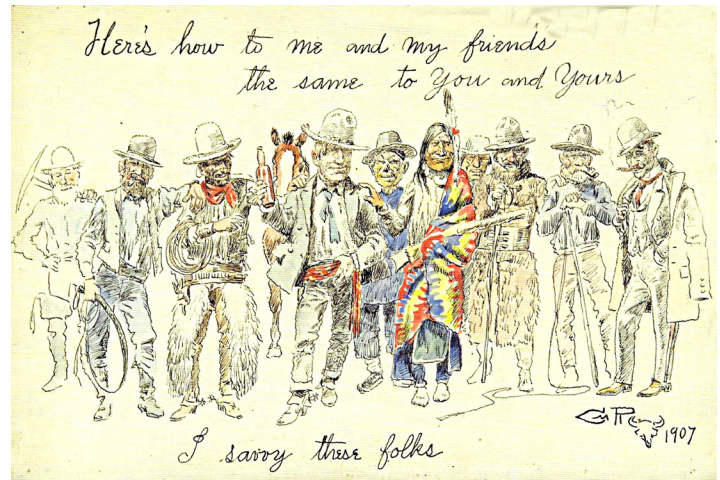 Here's how to me and my friends
the same to You and Yours
I savvy these folks
CMR 1907